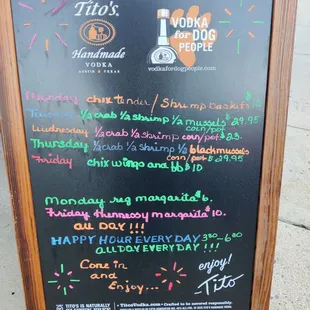 Tito's.
Handmade
VODKA
AUSTIN TEXAS
VODKA
for DOG
PEOPLE
vodkafordogpeople.com
Monday chix tender / Shrimp baskets $
1/2 crab 1/2 shrimp 1/2 mussels $29.95
corn/pot
Wednesday 1/2 crab 1/2 shrimp corn/pot $23.
Thursday 1/2 crab 1/2 shrimp 1/2 blackmussels
corn/pot $29.95
Friday chix wings and bb $10
Monday reg margarita $6.
Friday Hennessy margarita 10.
all DAY!!!
HAPPY HOUR EVERYDAY 3:00-6:00
ALL DAY EVERYDAY!!!
Come in
and
Enjoy...
enjoy!
Tito
TITO'S IS NATURALLY
TitosVodka.com • Crafted to be savored responsibly.